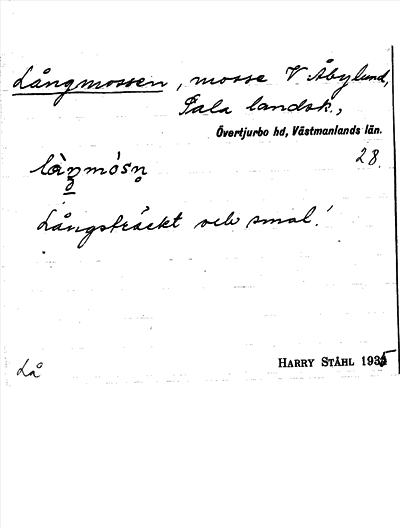 Långmossen, mosse V Åbylund,
Sala landsk.,
Övertjurbo hd, Västmanlands län.
28.
Långsträckt och smal!
Lå
HARRY STÅHL 1935